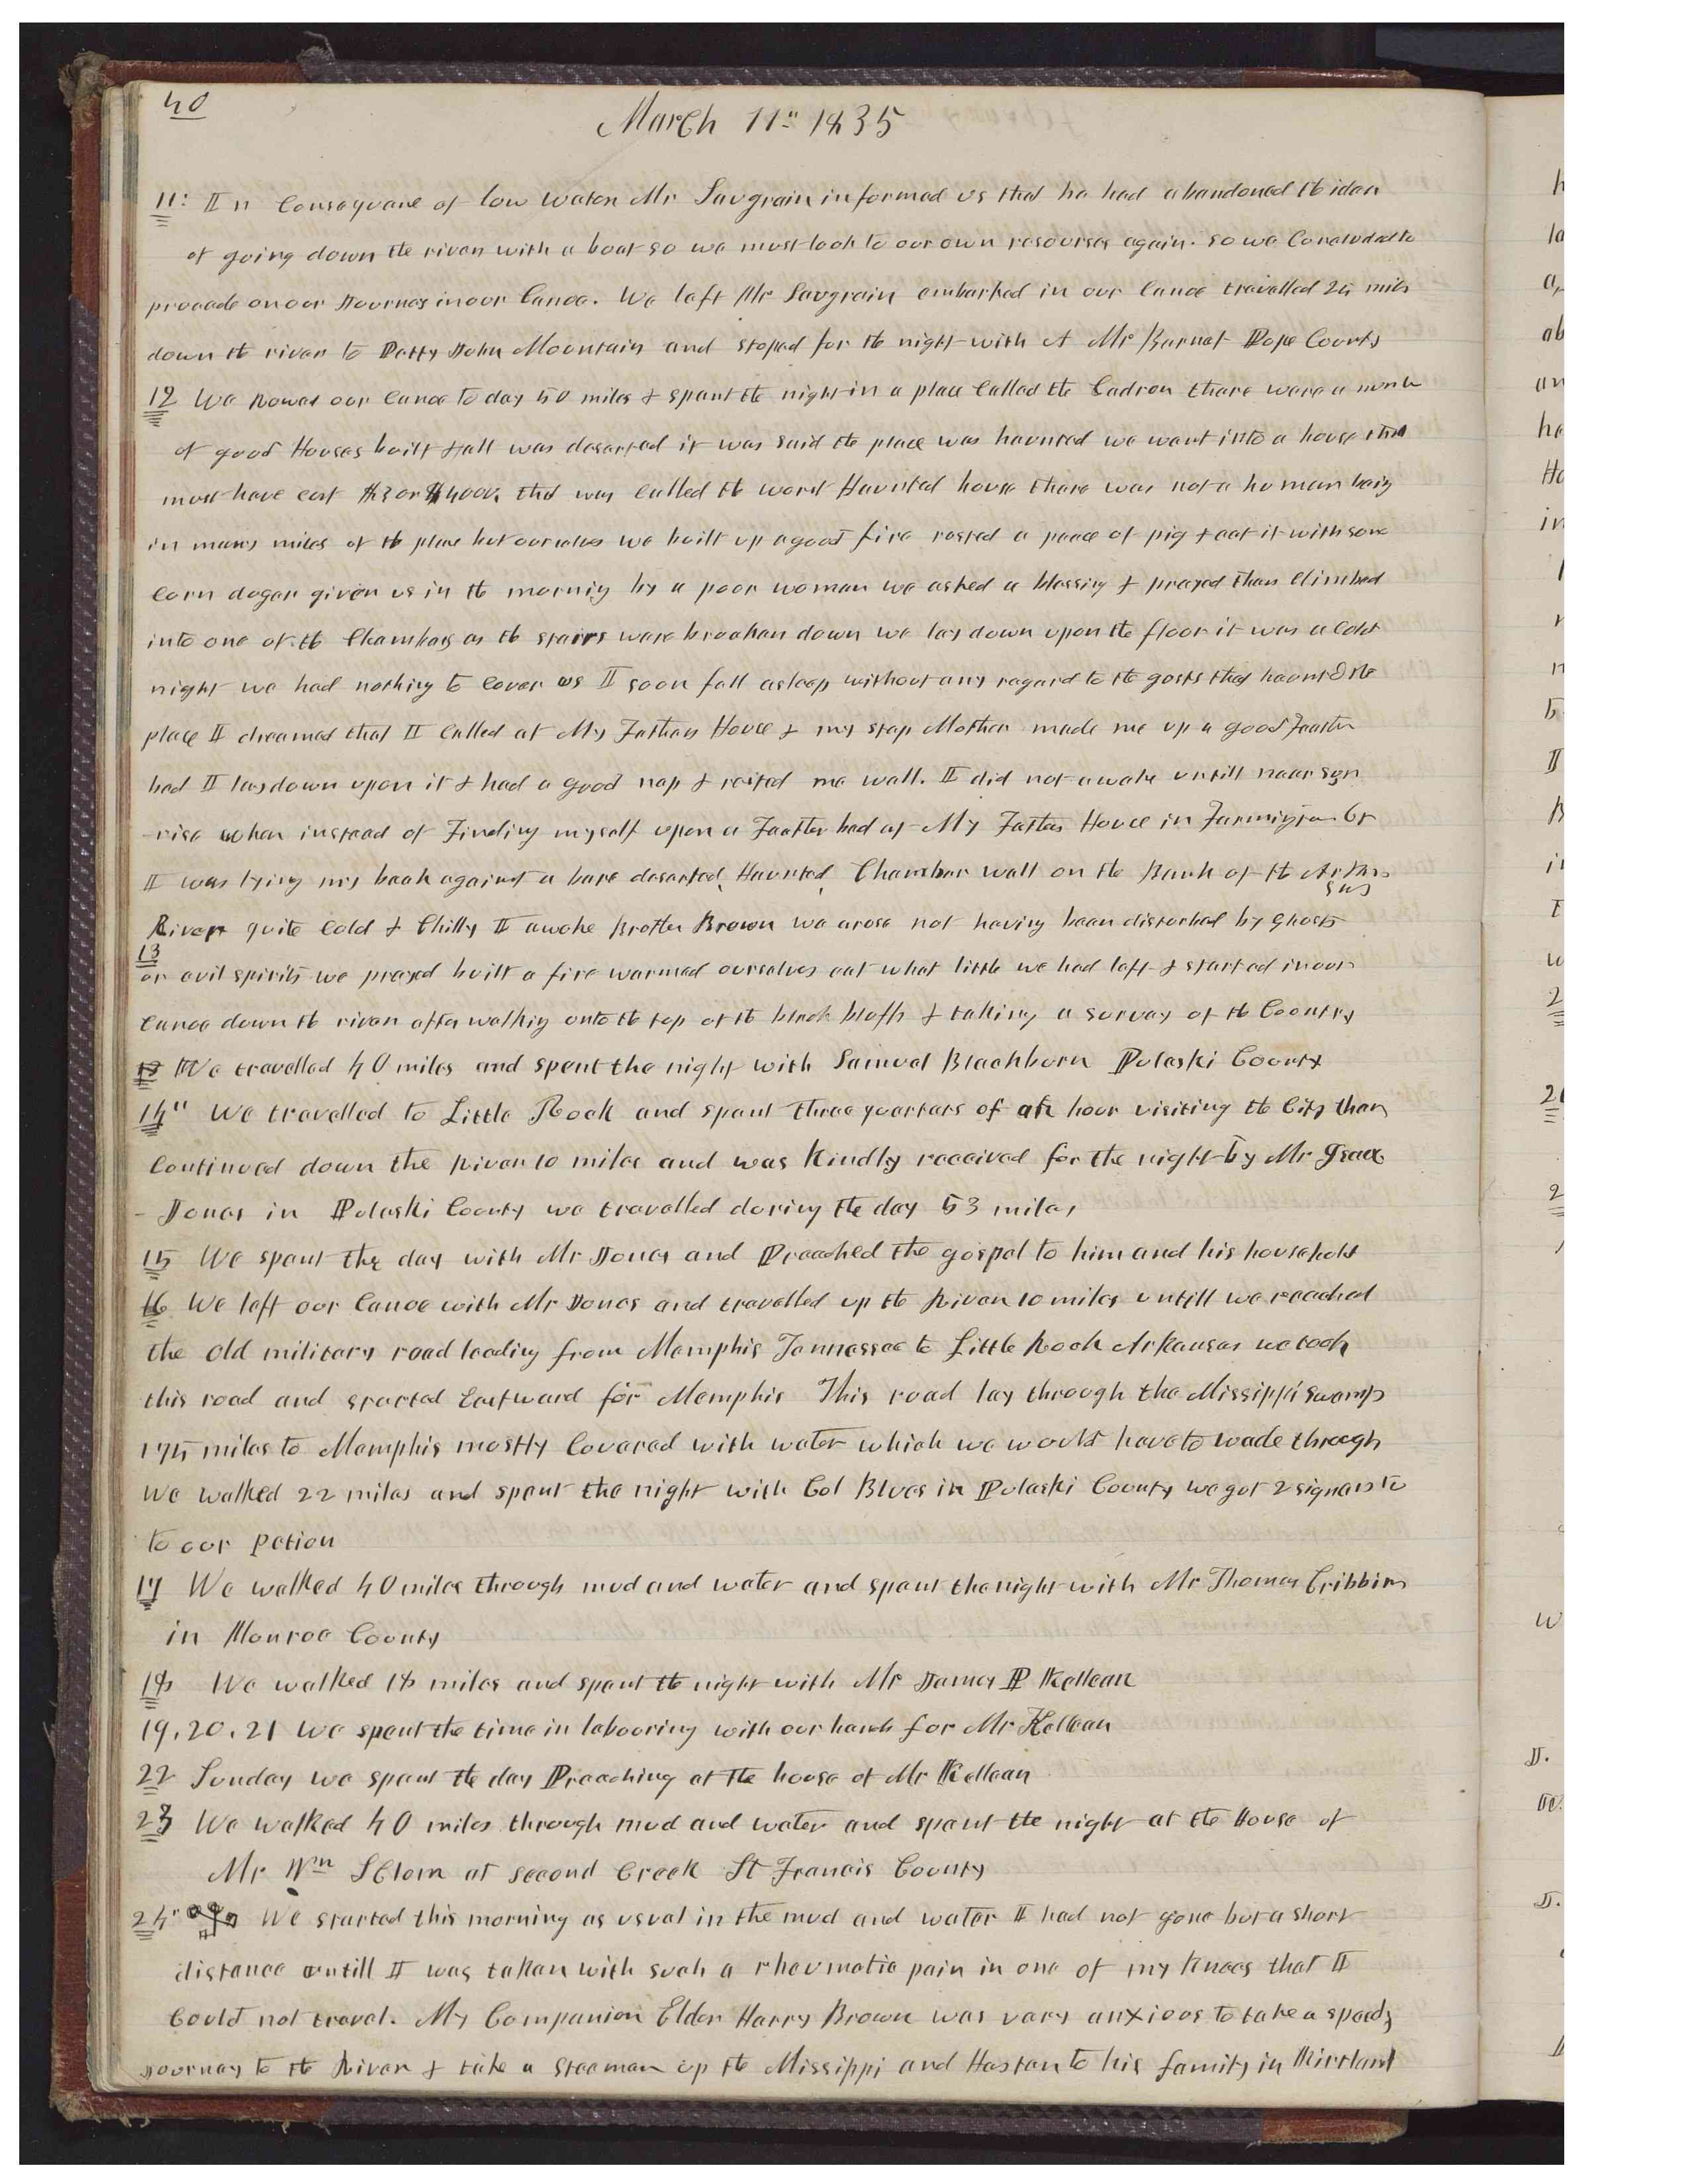 40
March 11th 1835
11: In Consequence of low water Mr Saugrain informed us that he had abandoned the idea
of going down the river with a boat so we must look to our own resourses again. so we Concluded to
proceede on our Journey in our Canoe. We left Mr Saugrain embarked in our Canoe travelled 25 miles
down the river to Patty John Mountain and stoped for the night with A Mr Barnet Pope County
12 We Rowed our Canoe to day 50 miles & spent the night in a place Called the Cadron there were a numbe
of good Houses built & all was deserted it was said the place was haunted we went into a house that
must have cost $3 or $4000, that was Called the worst Haunted house there was not a human being
in many miles of the place but ourselves we built up a good fire rosted a peace of pig & eat it with some
Corn doger given us in the morning by a poor woman we asked a blessing & prayed then Climbed
into one of the Chambers as the stairs ware broaken down we lay down upon the floor it was a Cold
night we had nothing to Cover us I soon fell asleep without any regard to the gosts that haunted the
place I dreamed that I Called at My Fathers House & my step Mother made me up a good Feather
bed I lay down upon it & had a good nap & rested me well. I did not awake untill near sun
-rise when instead of Finding myself upon a Feather bed at My Fathers House in Farmington Ct
I was lying my back against a bare deserted, Haunted, Chamber wall on the Bank of the Arkan
sas
River quite Cold & Chilly I awoke Brother Brown we arose not having been disturbed by Ghosts
13
or evil spirits we prayed built a fire warmed ourselves eat what little we had left & started in our
Canoe down the river after walking onto the top of the black bluffs & taking a survey of the Country
13 We travelled 40 miles and spent the night with Samuel Blackburn Pulaski County
14" We travelled to Little Rock and spent three quarters of an hour visiting the City then
Continued down the River 10 miles and was kindly received for the night by Mr
Jones in Pulaski County we travelled during the day 53 miles
15 We spent the day with Mr Jones and Preached the gospel to him and his household
16 We left our Canoe with Mr Jones and travelled up the River 10 miles untill we reached
the old military road leading from Memphis Tennessee to Little Rock Arkansas we took
this road and started Eastward for Memphis This road lay through the Missippi swamps
175 miles to Memphis mostly Covered with water which we would have to wade through
We walked 22 miles and spent the night with Col Blues in Pulaski County we got 2 signers to
to our petion
17 We walked 40 miles through mud and water and spent the night with Mr Thomas Cribbins
in Monroe County
18 We walked 18 miles and spent the night with Mr James P Kellean
19, 20, 21 We spent the time in labouring with our hands for Mr Kellean
22 Sunday we spent the day Preaching at the house of Mr Kellean
23 We walked 40 miles through mud and water and spent the night at the House of
Mr Wm Sclorn at second Creek St Francis County
24" We started this morning as usual in the mud and water I had not gone but a short
distance untill I was taken with such a rheumatic pain in one of my knees that I
Could not travel. My Companion Elder Harry Brown was very anxious to take a speedy
journey to the River & take a steeman up the Missippi and Hasten to his family in Kirtland